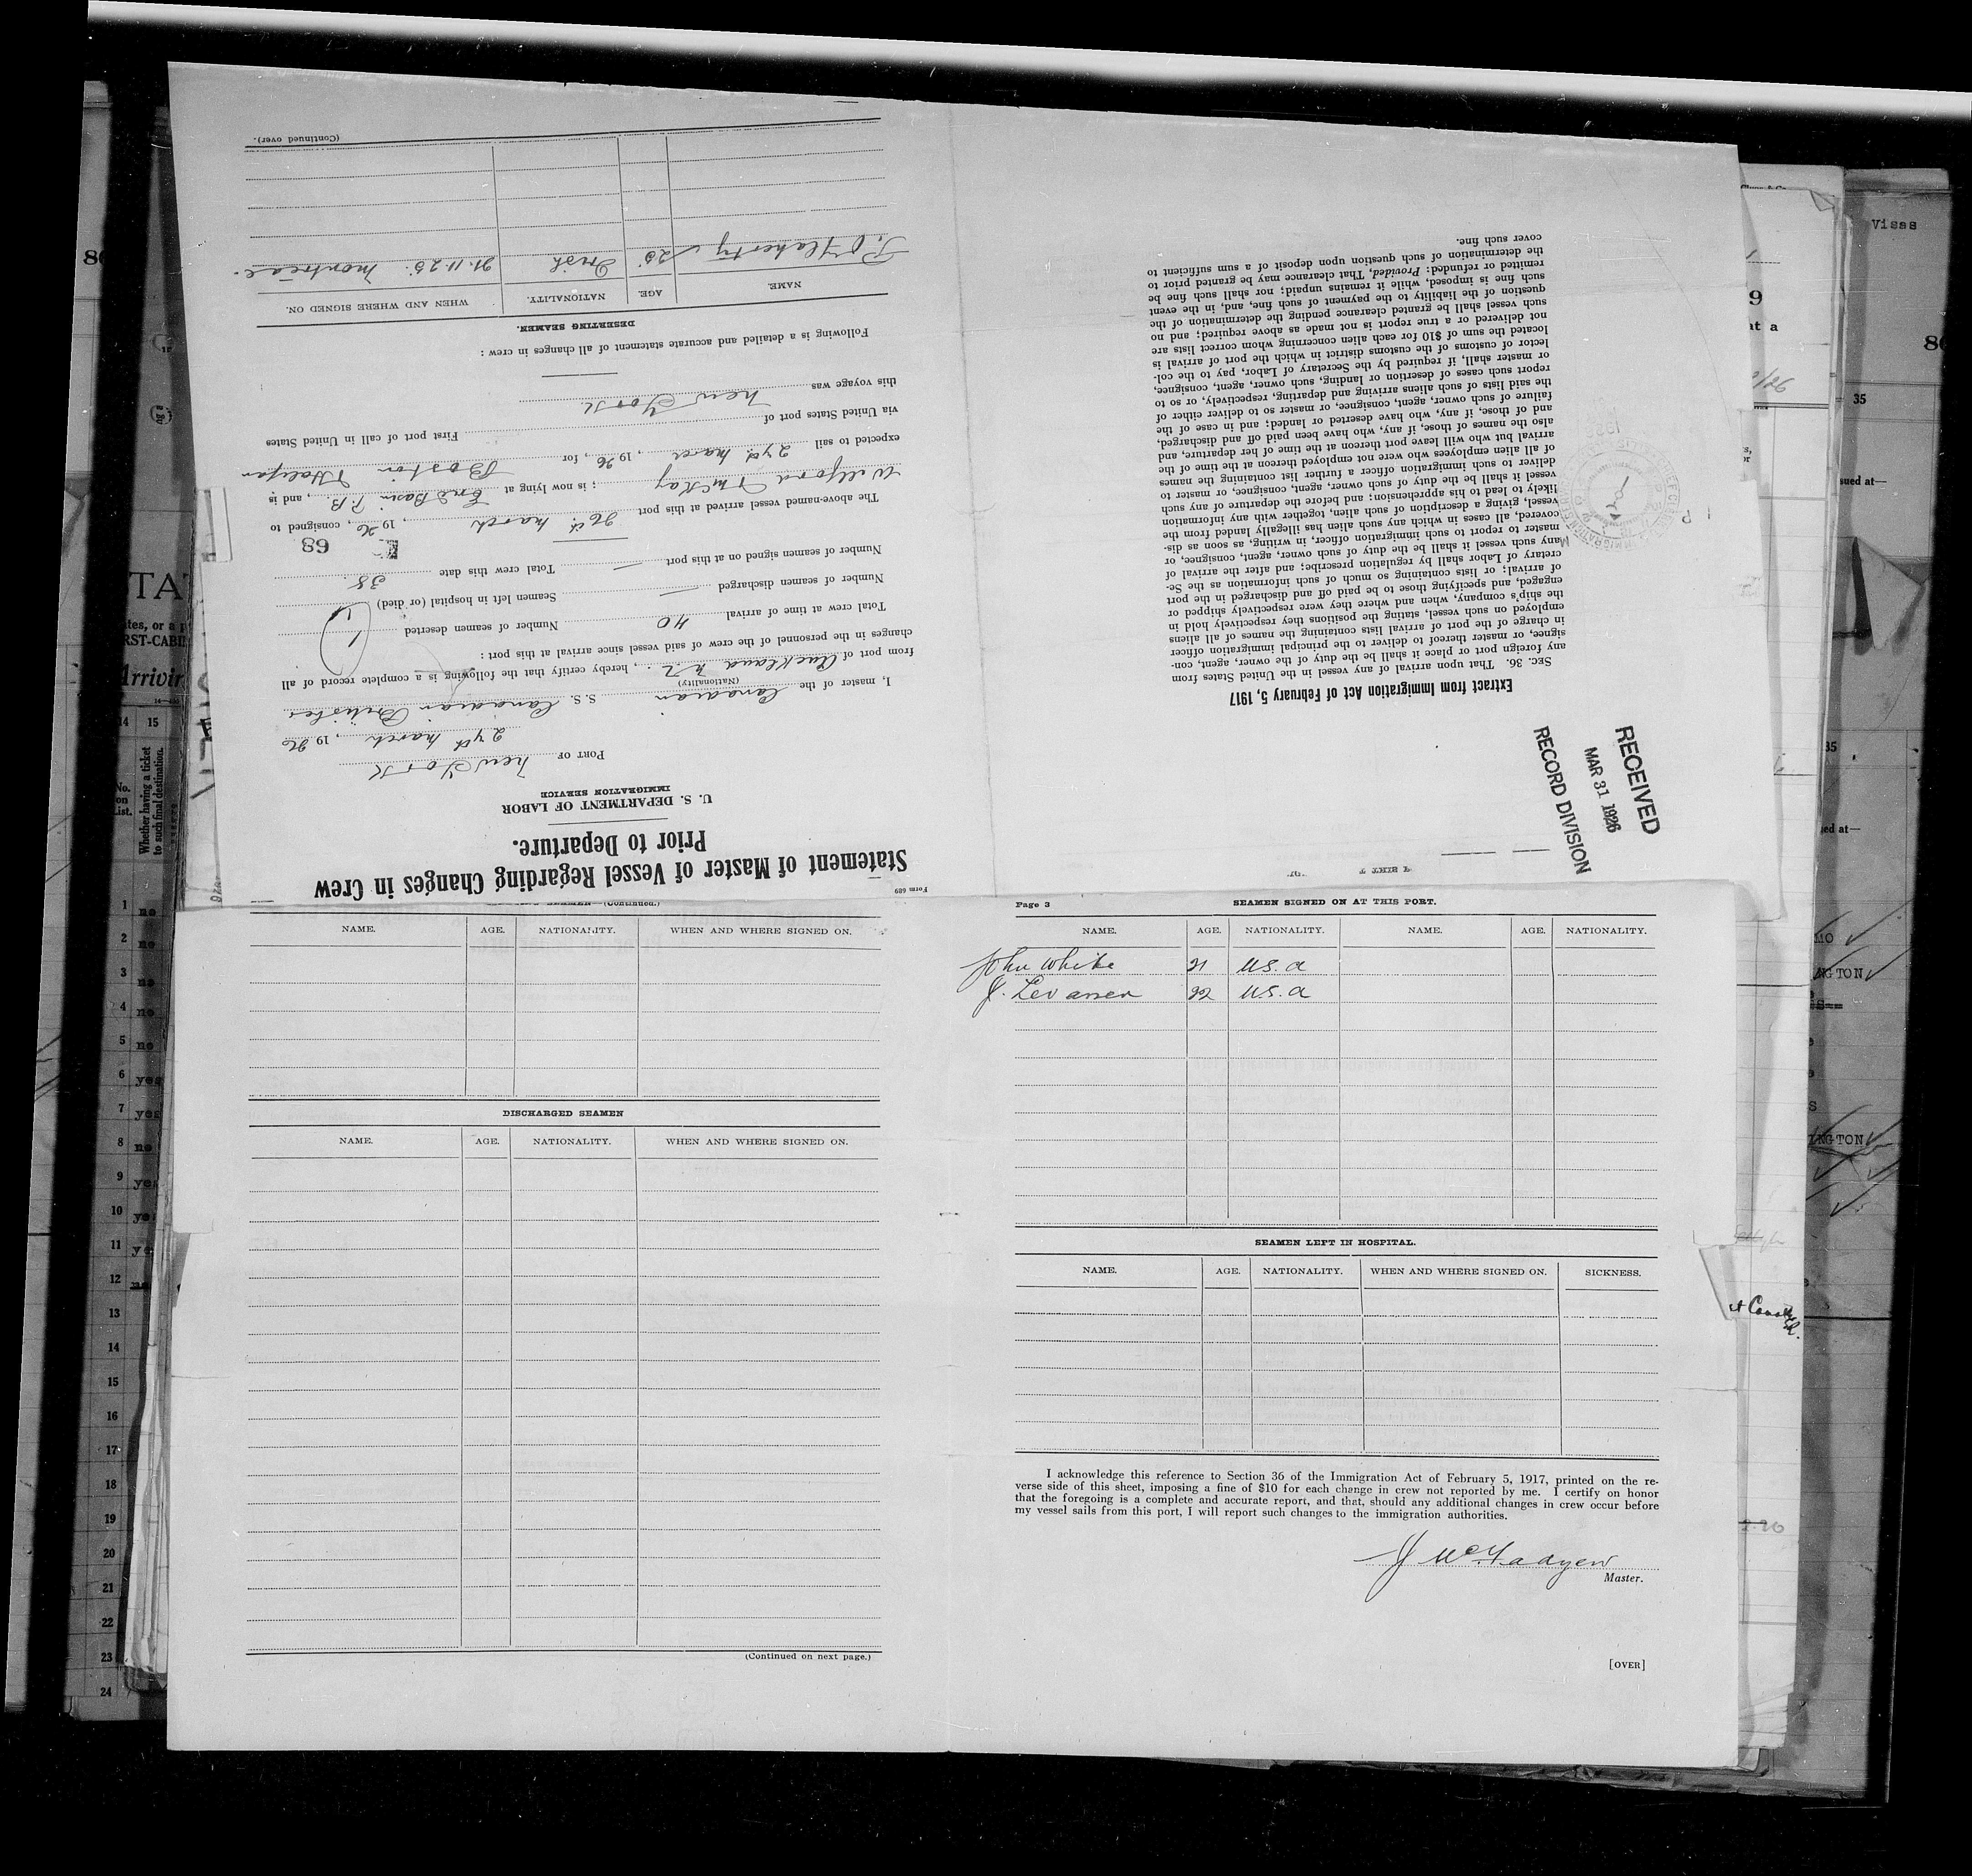 Form 689
Statement of Master of Vessel Regarding Changes in Crew
Prior to Departure.
U. S. DEPARTMENT OF LABOR
IMMIGRATION SERVICE
PORT OF New York
27th March, 1926
I, master of the Canadian S. S. Canadian British
(Nationality)
from port of Auckland N.Z., hereby certify that the following is a complete record of all
changes in the personnel of the crew of said vessel since arrival at this port:
Total crew at time of arrival 40 Number of seamen deserted 1
Number of seamen discharged — Seamen left in hospital (or died)
Number of seamen signed on at this port — Total crew this date 38.
E 68
The above-named vessel arrived at this port 26th March, 1926, consigned to
Willford McKay; is now lying at Erie Basin P.B., and is
expected to sail 27th March, 1926, for Boston Halifax
via United States port of First port of call in United States
this voyage was New York
Following is a detailed and accurate statement of all changes in crew:
DESERTING SEAMEN.
NAME. AGE. NATIONALITY. WHEN AND WHERE SIGNED ON.
P. O'Flaherty 25 Irish 21.11.25. Montreal.
(Continued over).
RECEIVED
MAR 31 1926
RECORD DIVISION
Extract from Immigration Act of February 5, 1917
SEC. 36. That upon arrival of any vessel in the United States from
any foreign port or place it shall be the duty of the owner, agent, con-
signee, or master thereof to deliver to the principal immigration officer
in charge of the port of arrival lists containing the names of all aliens
employed on such vessel, stating the positions they respectively hold in
the ship's company, when and where they were respectively shipped or
engaged, and specifying those to be paid off and discharged in the port
of arrival; or lists containing so much of such information as the Se-
cretary of Labor shall by regulation prescribe; and after the arrival of
any such vessel it shall be the duty of such owner, agent, consignee, or
master to report to such immigration officer, in writing, as soon as dis-
covered, all cases in which any such alien has illegally landed from the
vessel, giving a description of such alien, together with any information
likely to lead to his apprehension; and before the departure of any such
vessel it shall be the duty of such owner, agent, consignee, or master to
deliver to such immigration officer a further list containing the names
of all alien employees who were not employed thereon at the time of the
arrival but who will leave port thereon at the time of her departure, and
also the names of those, if any, who have been paid off and discharged,
and of those, if any, who have deserted or landed; and in case of the
failure of such owner, agent, consignee, or master so to deliver either of
the said lists of such aliens arriving and departing, respectively, or so to
report such cases of desertion or landing, such owner, agent, consignee,
or master shall, if required by the Secretary of Labor, pay to the col-
lector of customs of the customs district in which the port of arrival is
located the sum of $10 for each alien concerning whom correct lists are
not delivered or a true report is not made as above required; and no
such vessel shall be granted clearance pending the determination of the
question of the liability to the payment of such fine, and, in the event
such fine is imposed, while it remains unpaid; nor shall such fine be
remitted or refunded: Provided, That clearance may be granted prior to
the determination of such question upon deposit of a sum sufficient to
cover such fine.
(Continued.)
NAME. AGE. NATIONALITY. WHEN AND WHERE SIGNED ON.
DISCHARGED SEAMEN
NAME. AGE. NATIONALITY. WHEN AND WHERE SIGNED ON.
(Continued on next page.)
Page 3
SEAMEN SIGNED ON AT THIS PORT.
NAME. AGE. NATIONALITY. NAME. AGE. NATIONALITY.
John White 21 U.S.A
J. Levansen 22 U.S.A
SEAMEN LEFT IN HOSPITAL.
NAME. AGE. NATIONALITY. WHEN AND WHERE SIGNED ON. SICKNESS.
I acknowledge this reference to Section 36 of the Immigration Act of February 5, 1917, printed on the re-
verse side of this sheet, imposing a fine of $10 for each change in crew not reported by me. I certify on honor
that the foregoing is a complete and accurate report, and that, should any additional changes in crew occur before
my vessel sails from this port, I will report such changes to the immigration authorities.
Master.
[OVER]